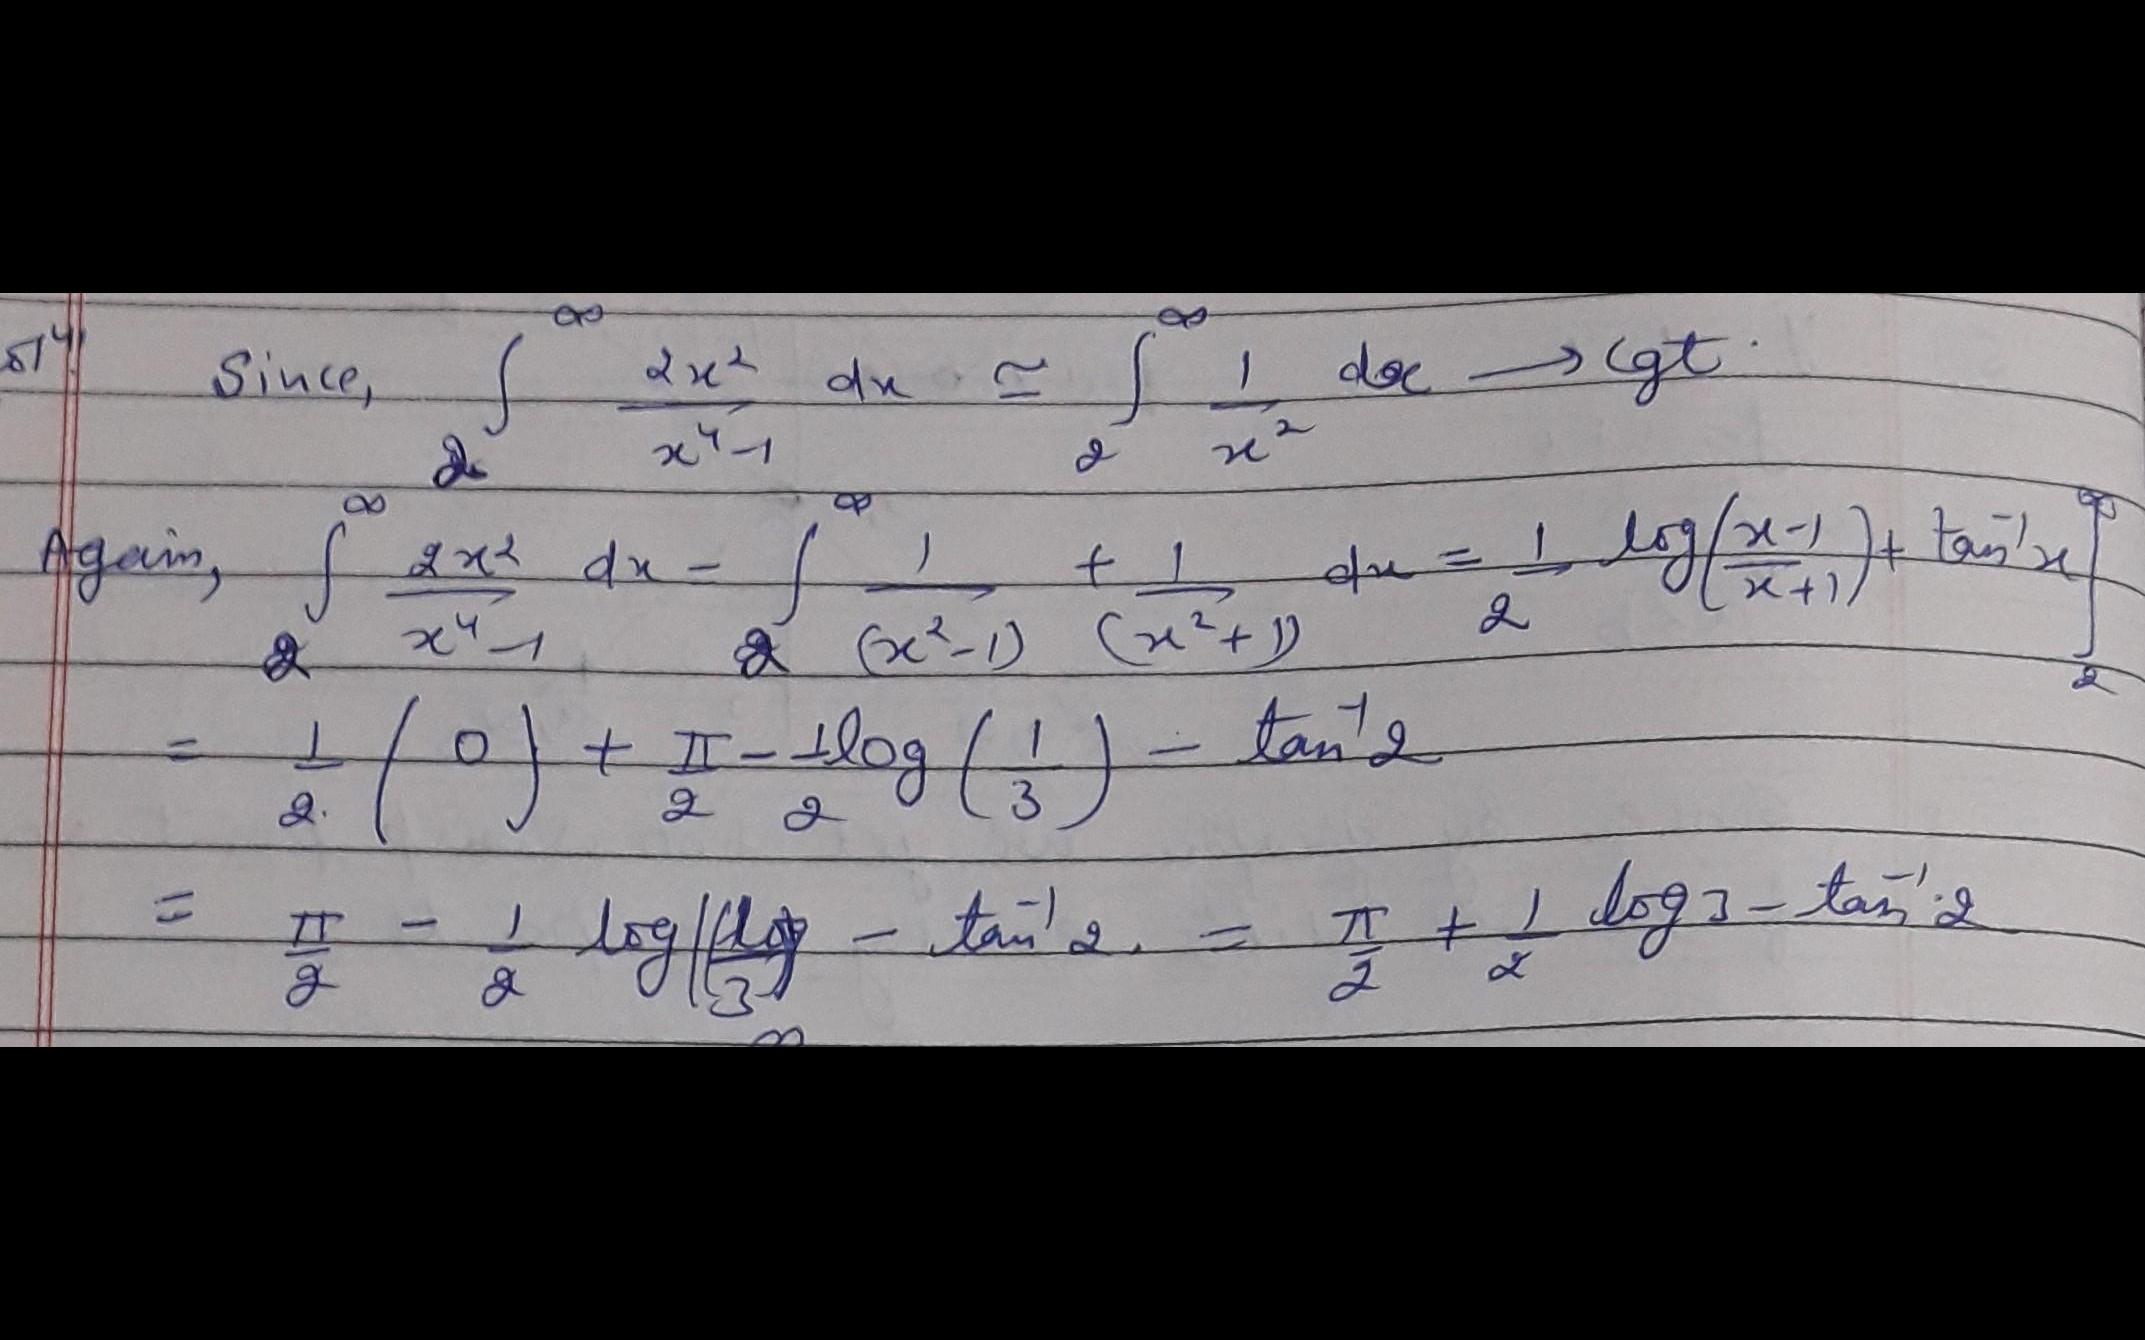 Since, ∫₂^∞ 2x²/(x⁴-1) dx ≃ ∫₂^∞ 1/x² dx → cgt.
Again, ∫₂^∞ 2x²/(x⁴-1) dx = ∫₂^∞ 1/(x²-1) + 1/(x²+1) dx = 1/2 log((x-1)/(x+1)) + tan⁻¹x]₂^∞
= 1/2 (0) + π/2 - 1/2 log(1/3) - tan⁻¹2
= π/2 - 1/2 log - tan⁻¹2. = π/2 + 1/2 log 3 - tan⁻¹2